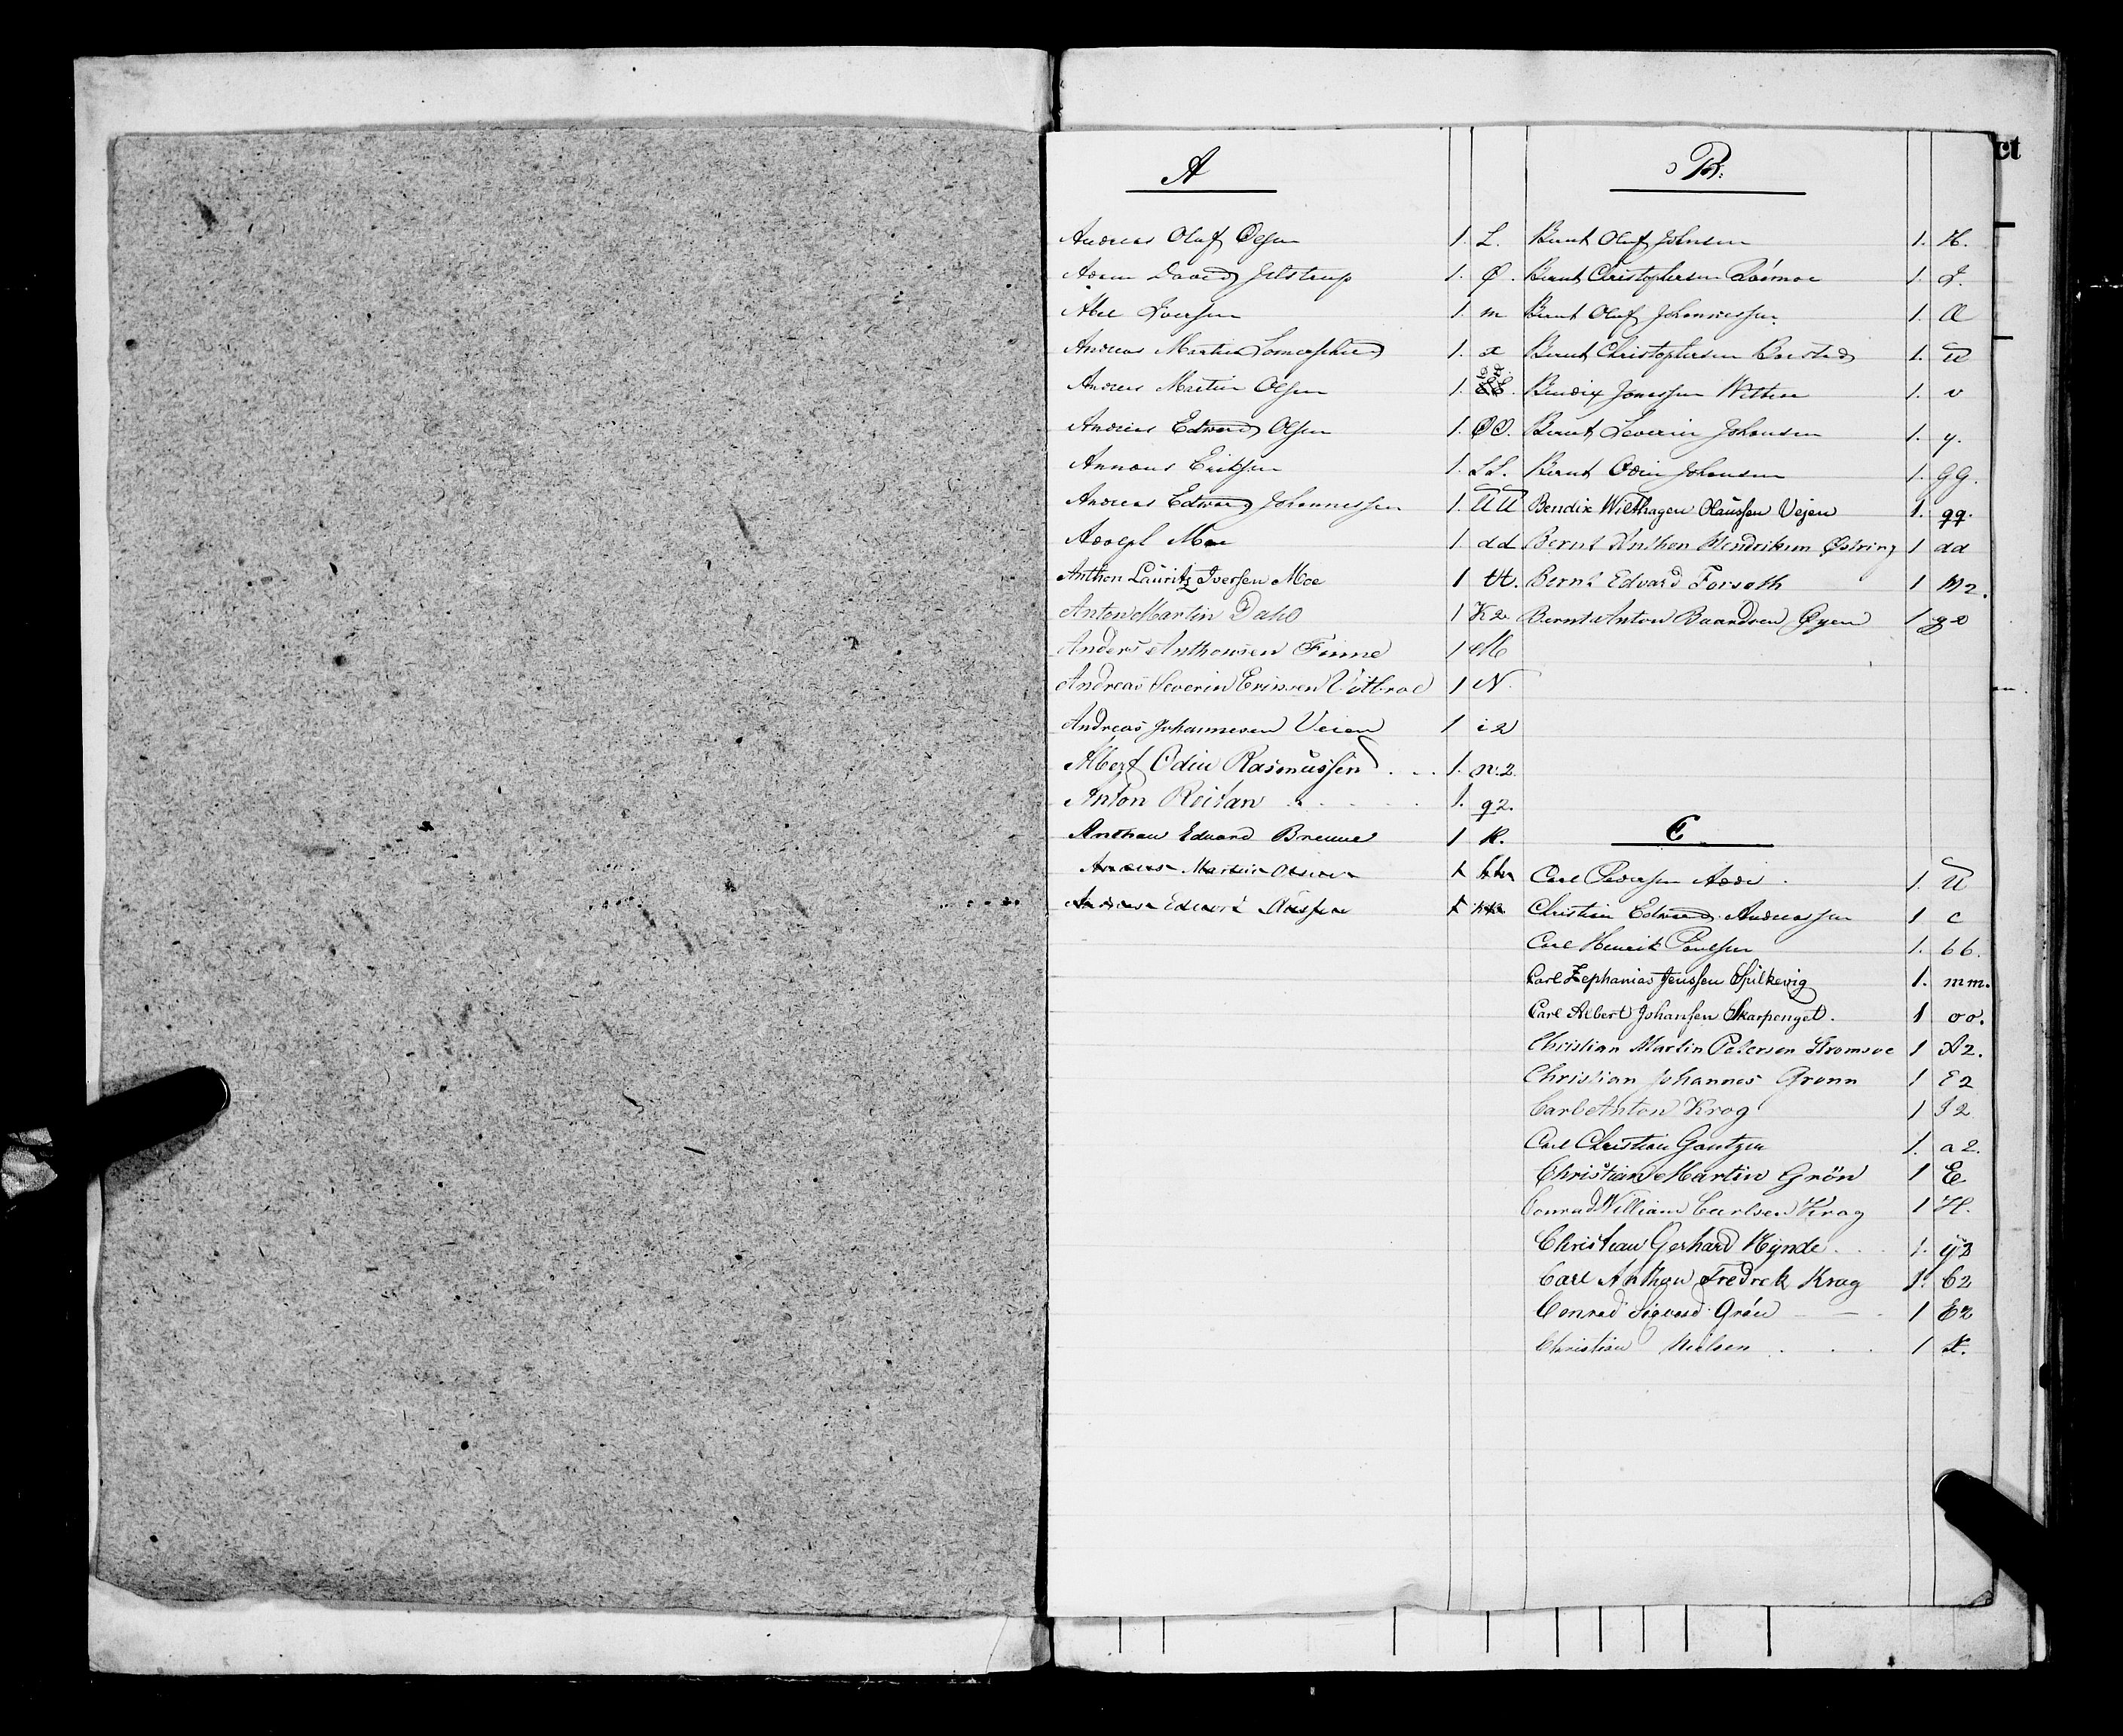 A
Andreas Olaf Olsen 1. L.
Adam David Jelstrup 1. Ø.
Abel Iversen 1. m
Andreas Martin 1. x
Andreas Martin Olsen 1.
Andreas Edward Olsen 1. ØØ.
Annanus Eriksen 1. LL.
Andreas Edward Johannessen 1. UU
Adolph Moe 1 dd
Anthon Lauritz Iversen Moe 1 tt.
Anton Martin Dahl 1 K2
Anders Anthonsen Finne 1 M
Andreas Severin Erinsen 1 N.
Andreas Johannesen Veien 1 i2
Albert Odin Rasmussen 1. n.2.
Anton Reitan 1. q2.
Anthon Edvard Brenne 1 R.
Andreas Martin Olsen 1
Andreas Edvard 1
B.
Bernt Oluf Johnsen 1. H.
Bernt Christophersen 1. I.
Bernt Oluf Johannessen 1. Q
Bernt Christophersen 1. U
Bendix Jonassen 1. v
Bernt Severin Johansen 1. y.
Bernt Odin Johansen 1. GG.
Bendix Wilthagen Olaussen Vejen 1. qq.
Bernt Anthon Hendriksen 1 dd
Bernt Edvard Forseth 1 M2.
Bernt Anton Baardsen Øyen 1 g2
C
Carl Pedersen 1. U
Christian Edward Andreassen 1 c
Carl Henrik Poulsen 1. bb.
Carl Zephanias Jenssen Spilkevig 1. mm.
Carl Albert Johansen Skarpenget. 1 oo.
Christian Martin Petersen Stromsoe 1 A2.
Christian Johannes Gronn 1 E2
Carl Anton Krog 1 I2
Carl Christian Gantzen 1. a2.
Christian Martin Grön 1 E
Conrad William Carlsen Krog 1 H.
Christian Gerhard Hynde 1. y2
Carl Anthon Fredrek Krog 1. C2
Conrad Sigvard Grön 1 E2
Christian Nielsen 1
ct